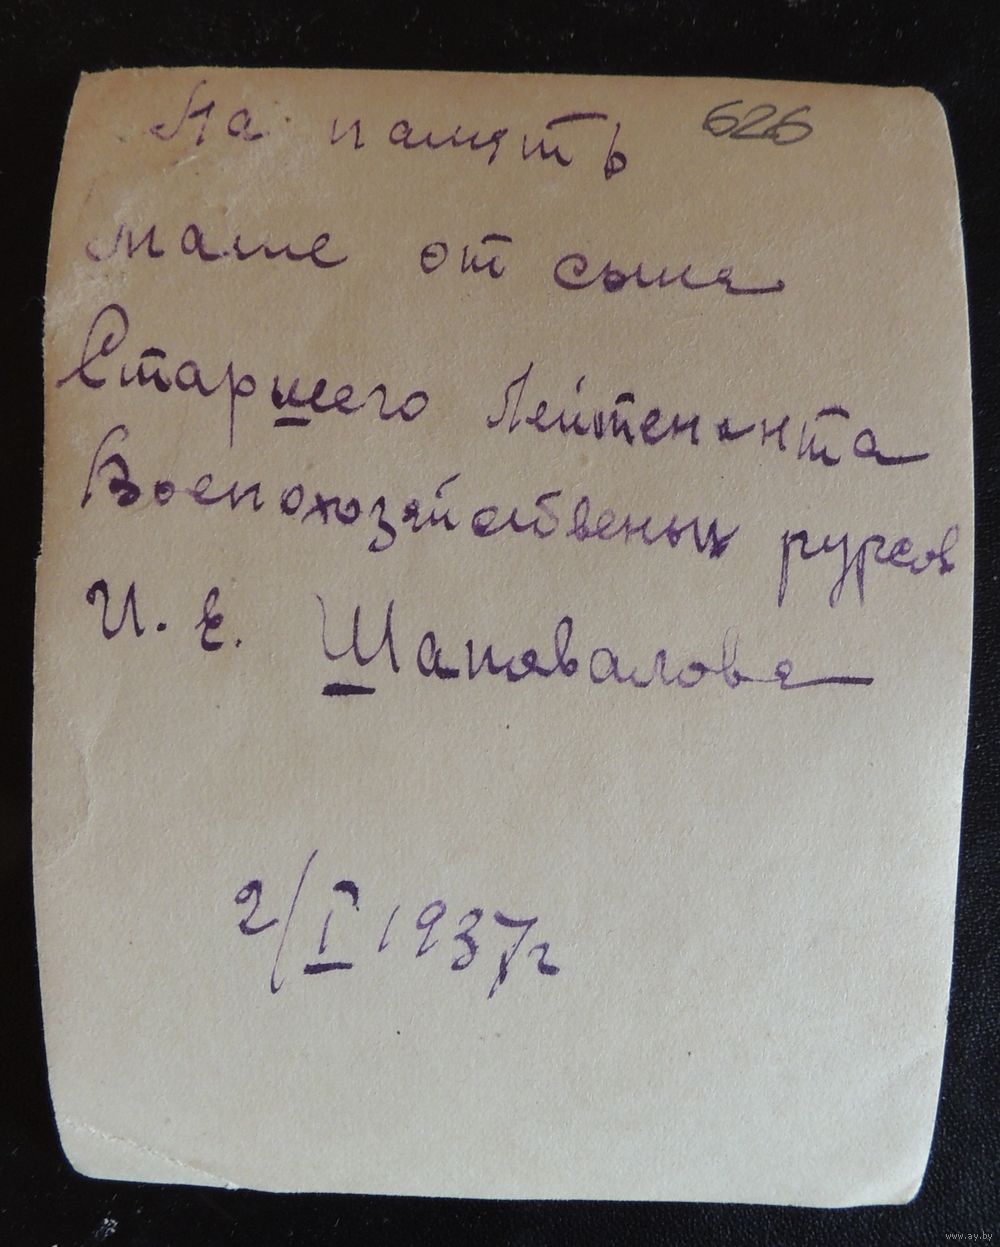 На память 626
маме от сына
Старшего Лейтенанта
Военохозяйственых рурсов
И. Е. Шаповалова
2/I 1937г
www.ay.by